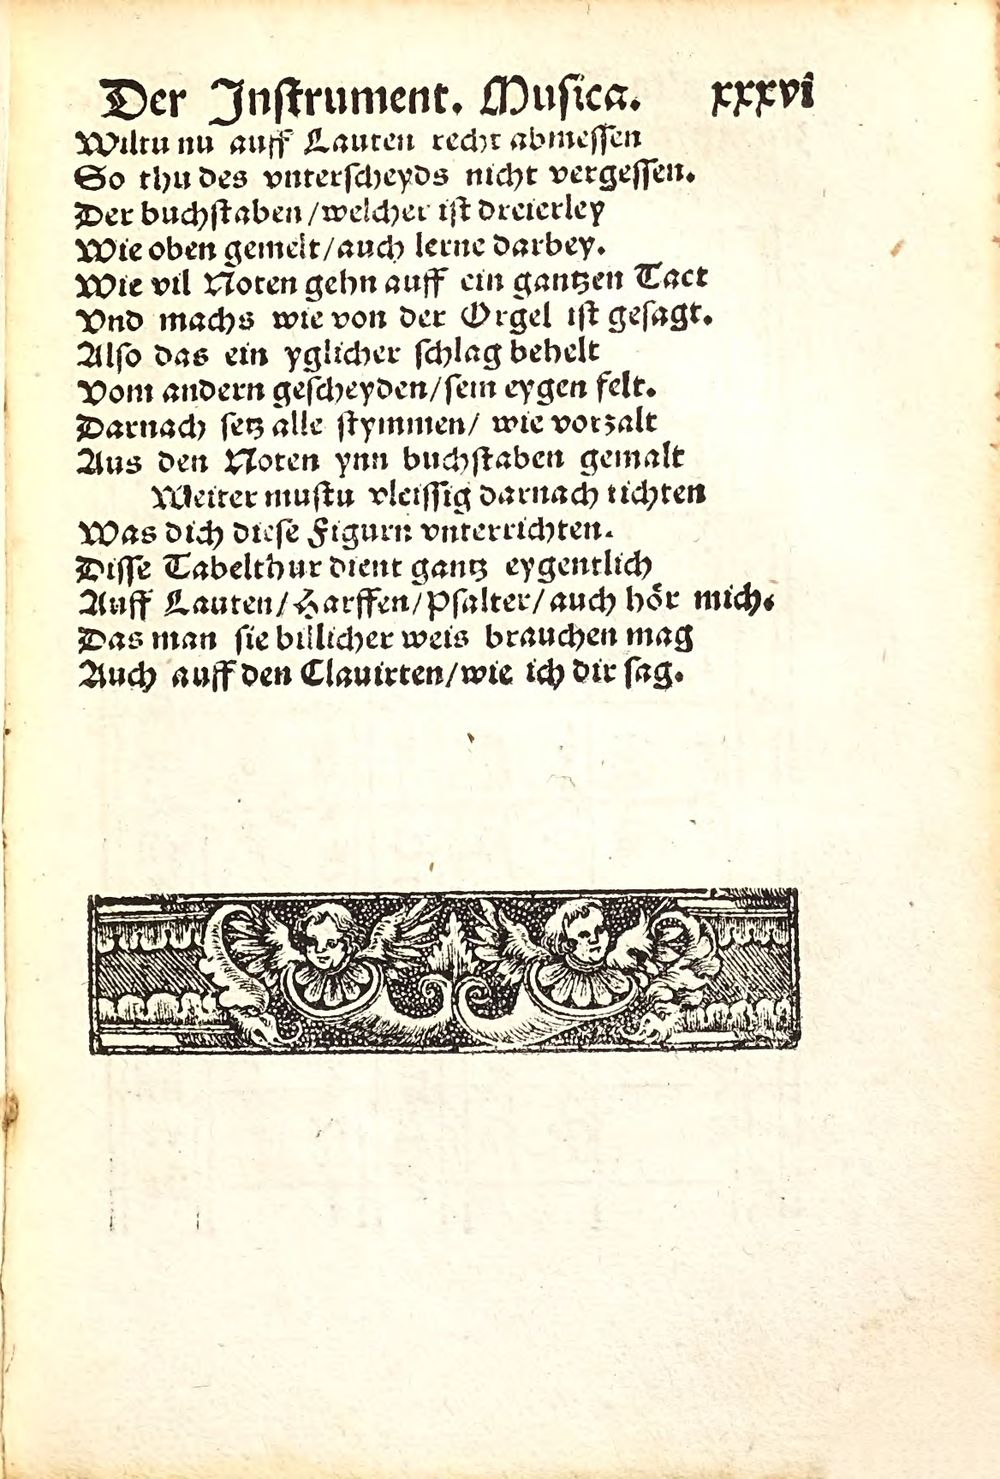 Der Inſtrument. Muſica. xxxvi
Wiltu nu auff Lauten recht abmeſſen
So thu des vnterſcheyds nicht vergeſſen.
Der buchſtaben/welcher iſt dreierley
Wie oben gemelt/auch lerne darbey.
Wie vil Noten gehn auff ein gantzen Tact
Vnd machs wie von der Orgel iſt geſagt.
Alſo das ein yglicher ſchlag behelt
Vom andern geſcheyden/ſein eygen felt.
Darnach ſetz alle ſtymmen/ wie vorzalt
Aus den Noten ynn buchſtaben gemalt
Weiter muſtu vleiſſig darnach richten
Was dich dieſe Figurn vnterrichten.
Diſſe Tabelthur dient gantz eygentlich
Auff Lauten/Harffen/Pſalter/auch hör mich.
Das man ſie billicher weis brauchen mag
Auch auff den Clauirten/wie ich dir ſag.